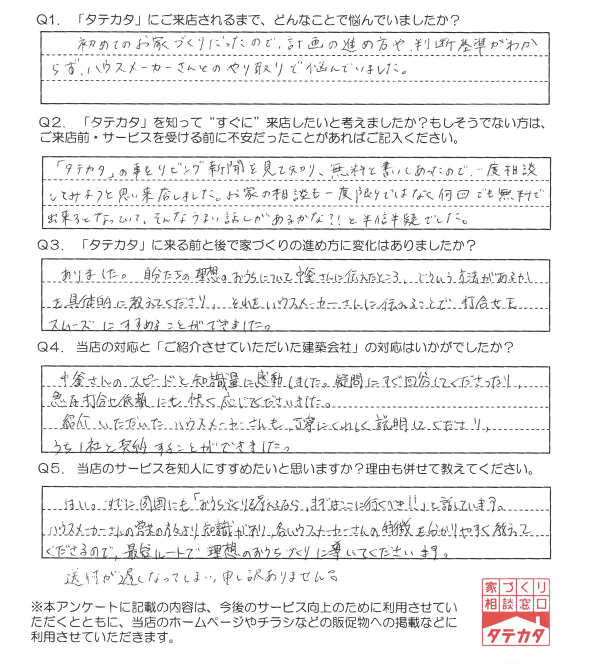 Q1. 「タテカタ」にご来店されるまで、どんなことで悩んでいましたか?
初めてのお家づくりだったので、計画の進め方や、判断基準がわか
らず、ハウスメーカーさんとのやり取りで悩んでいました。
Q2. 「タテカタ」を知って“すぐに”来店したいと考えましたか?もしそうでない方は、
ご来店前・サービスを受ける前に不安だったことがあればご記入ください。
「タテカタ」の事をリビング新聞を見て知り、無料と書いてあったので、一度相談
してみようと思い来店しました。お家の相談も一度限りではなく何回でも無料で
出来るとなっていて、そんなうまい話しがあるかな?!と半信半疑でした。
Q3. 「タテカタ」に来る前と後で家づくりの進め方に変化はありましたか?
ありました。自分たちの理想のおうちについて中釜さんに伝えたところ、どういう方法があるか
を具体的に教えてくださり、それをハウスメーカーさんに伝えることで、打合せを
スムーズにすすめることができました。
Q4. 当店の対応と「ご紹介させていただいた建築会社」の対応はいかがでしたか?
中釜さんのスピードと知識量に感動しました。疑問にすぐ回答してくださったり、
急な打合せ依頼にも快く応じてくださいました。
紹介いただいたハウスメーカーさんも、丁寧にくわしく説明してくださり、
うち1社と契約することができました。
Q5. 当店のサービスを知人にすすめたいと思いますか?理由も併せて教えてください。
はい。すでに周囲にも「おうちづくりを考えるなら、まずはここに行くべき!!」と話しています。
ハウスメーカーさんの営業の方より知識があり、各ハウスメーカーさんの特徴を分かりやすく教えて
くださるので、最短ルートで理想のおうちづくりに導いてくださいます。
送付が遅くなってしまい、申し訳ありません。
家づくり
相談窓口
タテカタ
※本アンケートに記載の内容は、今後のサービス向上のために利用させてい
ただくとともに、当店のホームページやチラシなどの販促物への掲載などに
利用させていただきます。